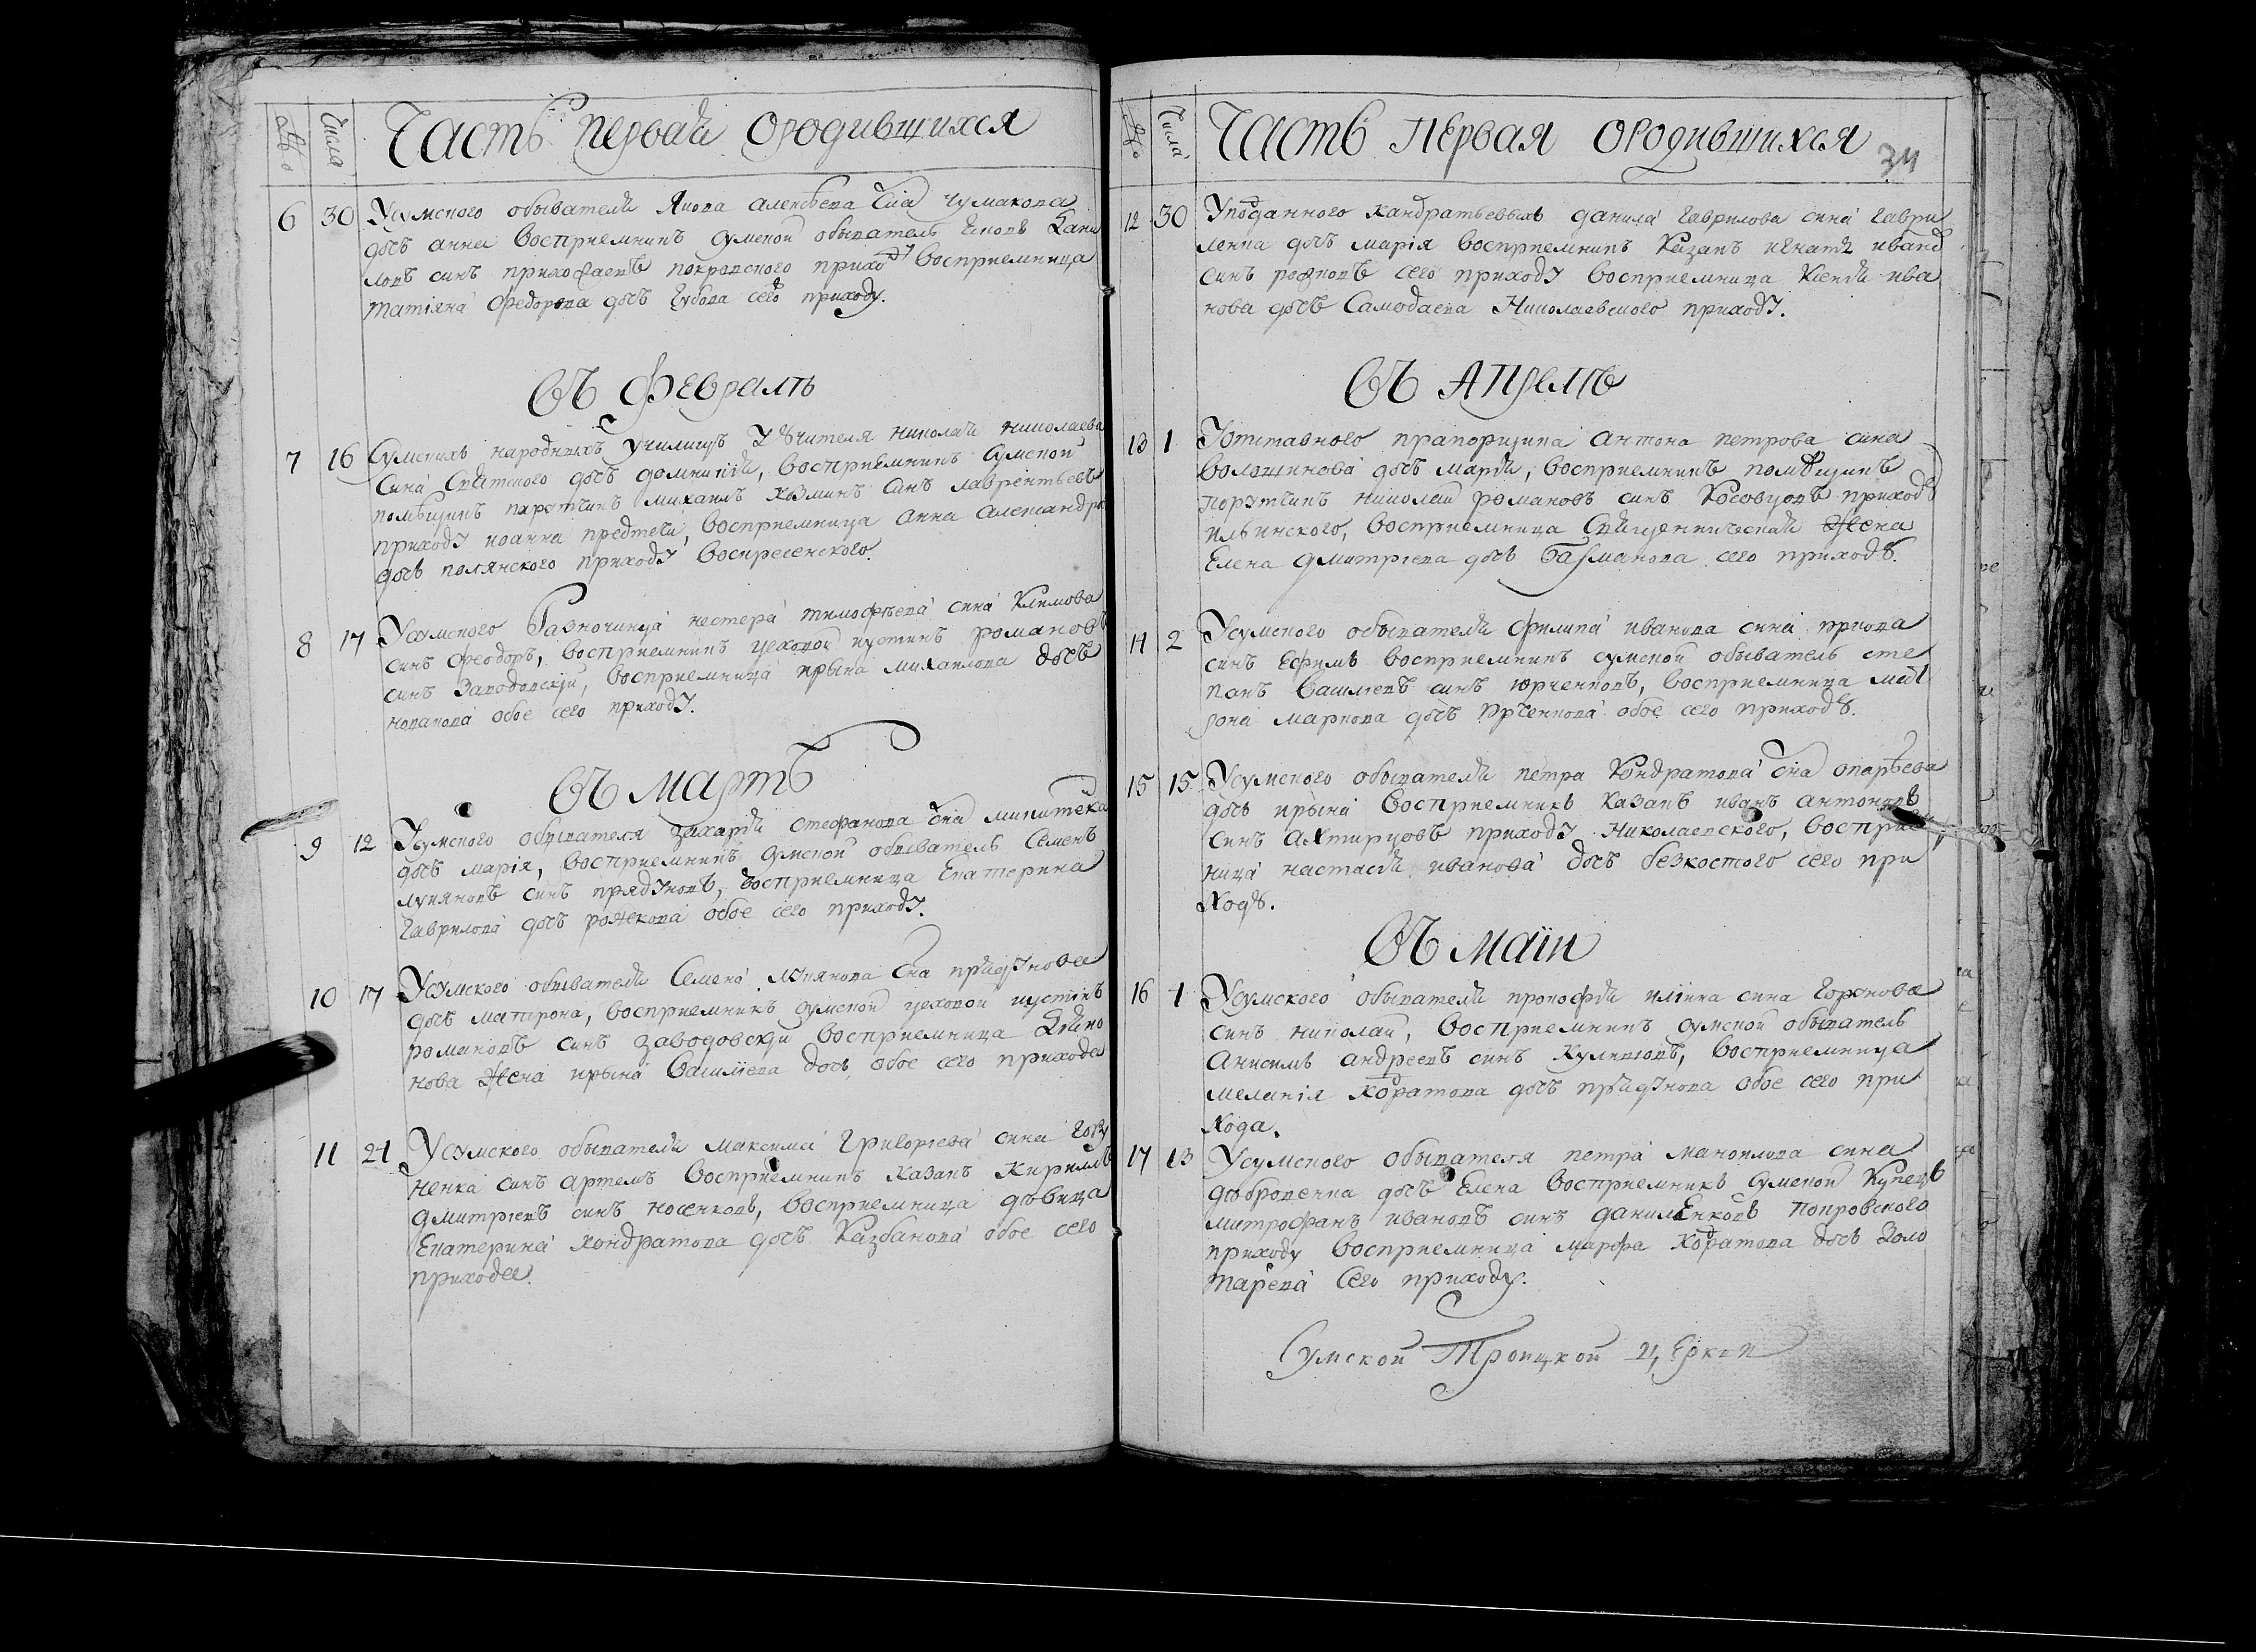 №
Числа
Часть первая ородившихся
6 30 Усумского обывателя Якова алексѣева сна чумакова
дочь анна восприемникъ сумской обыватель Яковъ
ловъ синъ прихо покровского приходу восприемница
татіяна федорова дочь Губова сего приходу.
Въ февралѣ
7 16 Сумскихъ народныхъ училищъ Учителя николая николаева
сина Святского дочь домникия, восприемникъ Сумской
помѣщикъ порутчикъ михаилъ козминъ синъ лаврентьевъ
приходу иоанна предтечи, восприемница анна александро
дочь полянского приходу воскресенского.
8 17 Усумского Разночинца нестера тимофѣева сина климова
синъ феодоръ, восприемникъ цеховой иустинъ романовъ
синъ Заводовскій, восприемница ирына михаилова дочь
новакова обое сего приходу.
Въ мартѣ
9 12 Усумского обывателя захария стефанова сна микитека
дочь марія, восприемникъ сумской обыватель Семенъ
лукяновъ синъ прядуновъ, восприемница Екатерина
Гаврилова дочь рожкова обое сего приходу.
10 17 Усумского обывателя Семена лукянова сна прядунова
дочь матрона, восприемникъ сумской цеховой иустинъ
романовъ синъ заводовски восприемница
нова жена ирына василиева дочь, обое сего прихода
11 21 Усумского обывателя максима Григориева сина
ненка синъ артемъ восприемникъ казакъ кирилъ
дмитриевъ синъ носенковъ, восприемница дѣвица
Екатерина кондратова дочь Казбанова обое сего
прихода.
№
Числа
Часть первая ородившихся 34
12 30 Уподанного кандратьевыхъ данила гаврилова сина гаври
ленка дочь марія восприемникъ Казакъ игнатъ ивано
синъ резновъ сего приходу восприемница Ксения ива
нова дочь Самодаева Николаевского приходу.
Въ Апрелѣ
13 1 Уотставного прапорщика антона петрова сина
волошинова дочь мария, восприемникъ помѣщикъ
порутчикъ николай романовъ синъ Косовцовъ приходу
ильинского, восприемница Священническая жена
Елена дмитриева дочь Базманова сего приходу.
14 2 Усумского обывателя филипа иванова сина
синъ Ефимъ восприемникъ сумской обыватель сте
панъ василиевъ синъ юрченковъ, восприемница мат
рона маркова дочь юрченкова обое сего приходу.
15 15 Усумского обывателя петра Кондратова сна опарьева
дочь ирына восприемникъ казакъ иванъ антоновъ
синъ ахтирцовъ приходу николаевского, восприем
ница настасия иванова дочь безкостого сего при
ходу.
Въ маіи
16 1 Усумского обывателя прокофия илиина сина
синъ николай, восприемникъ сумской обыватель
анисимъ андреевъ синъ Кулишовъ, восприемница
меланія кодратова дочь прядунова обое сего при
хода.
17 13 Усумского обывателя петра маноилова сина
дѣбровенка дочь Елена восприемникъ Сумской Купецъ
митрофанъ ивановъ синъ даниленковъ Покровского
приходу восприемница марфа кодратова дочь Золо
тарева сего приходу.
Сумской Троицкой Церкви